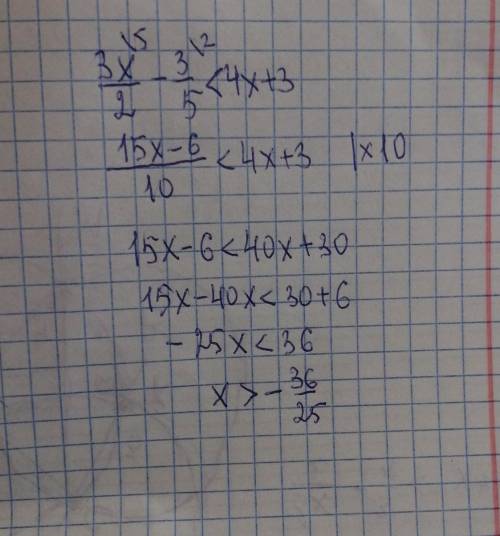 3x\5/2 - 3\2/5 < 4x+3
15x-6/10 < 4x+3 |x10
15x-6<40x+30
15x-40x<30+6
-25x<36
x>-36/25